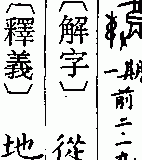 一期前二·一
〔解字〕從
〔釋義〕地